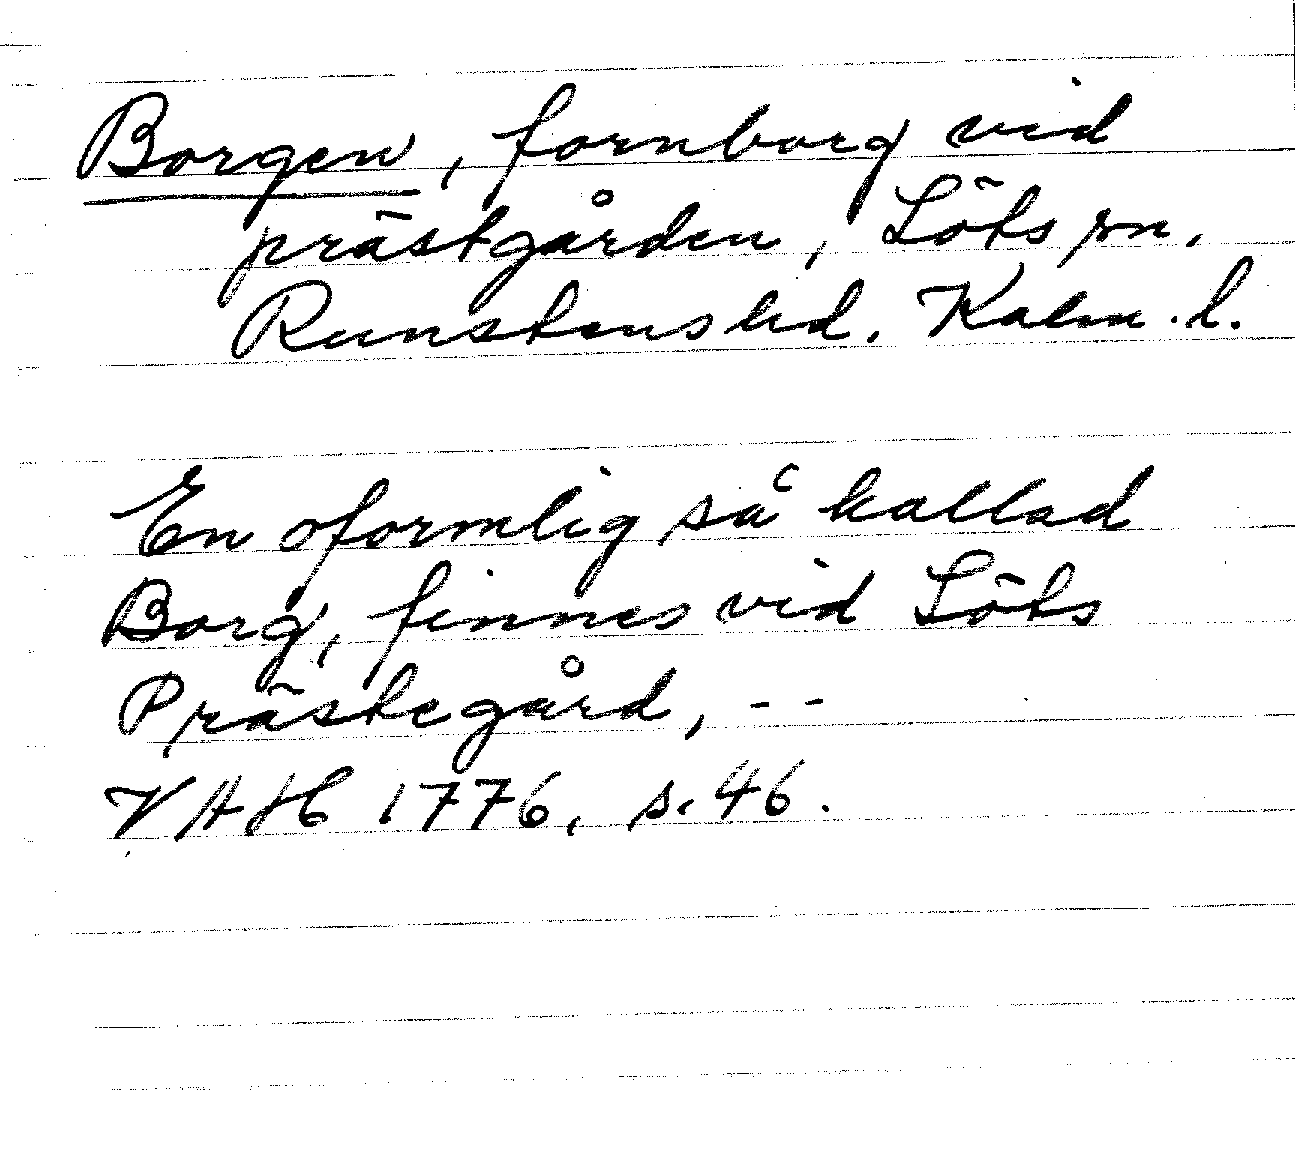 Borgen, fornborg vid
prästgården, Löts sn.
Runstens hd. Kalm. l.
En oformlig så kallad
Borg, finnes vid Löts
Prästegård, - -
VAH 1776, s. 46.